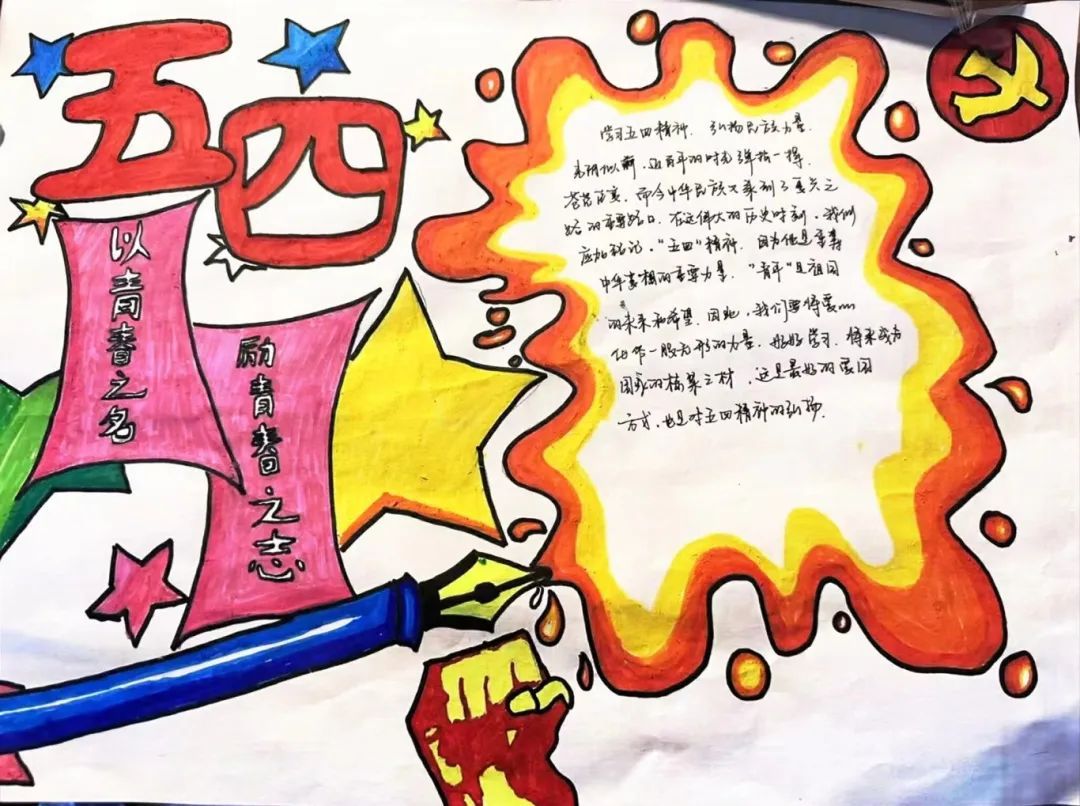 五四
以青春之名
励青春之志
学习五四精神，弘扬民族力量．
光阴似箭，近百年的时光弹指一挥，
苍茫，而今中华民族又来到了
的重要路口．在这伟大的历史时刻，我们
应加铭记，"五四"精神．因为他是
中华的重要力量．"青年"是祖国
的未来和希望．因此，我们要将爱
化作一股无形的力量，好好学习．将来成为
国家的栋梁之材，这是最好的爱国
方式，也是对五四精神的弘扬．